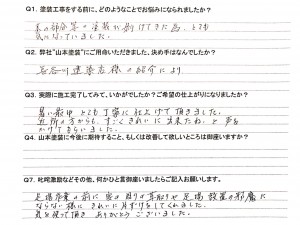 Q1. 塗装工事をする前に、どのようなことでお悩みになられましたか？
木の部分等の塗装が剥げてきた為、とても
気になっていました。
Q2. 弊社"山本塗装"にご用命いただきました、決め手はなんでしたか？
長谷川建築志様の紹介により
Q3. 実際に施工完了してみて、いかがでしたか？ご希望の仕上がりになりましたか？
暑い最中とても丁寧に仕上げて頂きました。
近所の方からも、すごくきれいに出来たね。と声も
かけてもらいました。
Q4. 山本塗装に今後に期待すること、もしくは改善して欲しいところは御座いますか？
Q7. 叱咤激励などその他、何かひと言御座いましたらご記入お願いします。
足場作業の前に家の周りの草取りや足場設置の邪魔に
ならない様にきれいに片すけをしてくれました。
気を使って頂きありがとうございました。